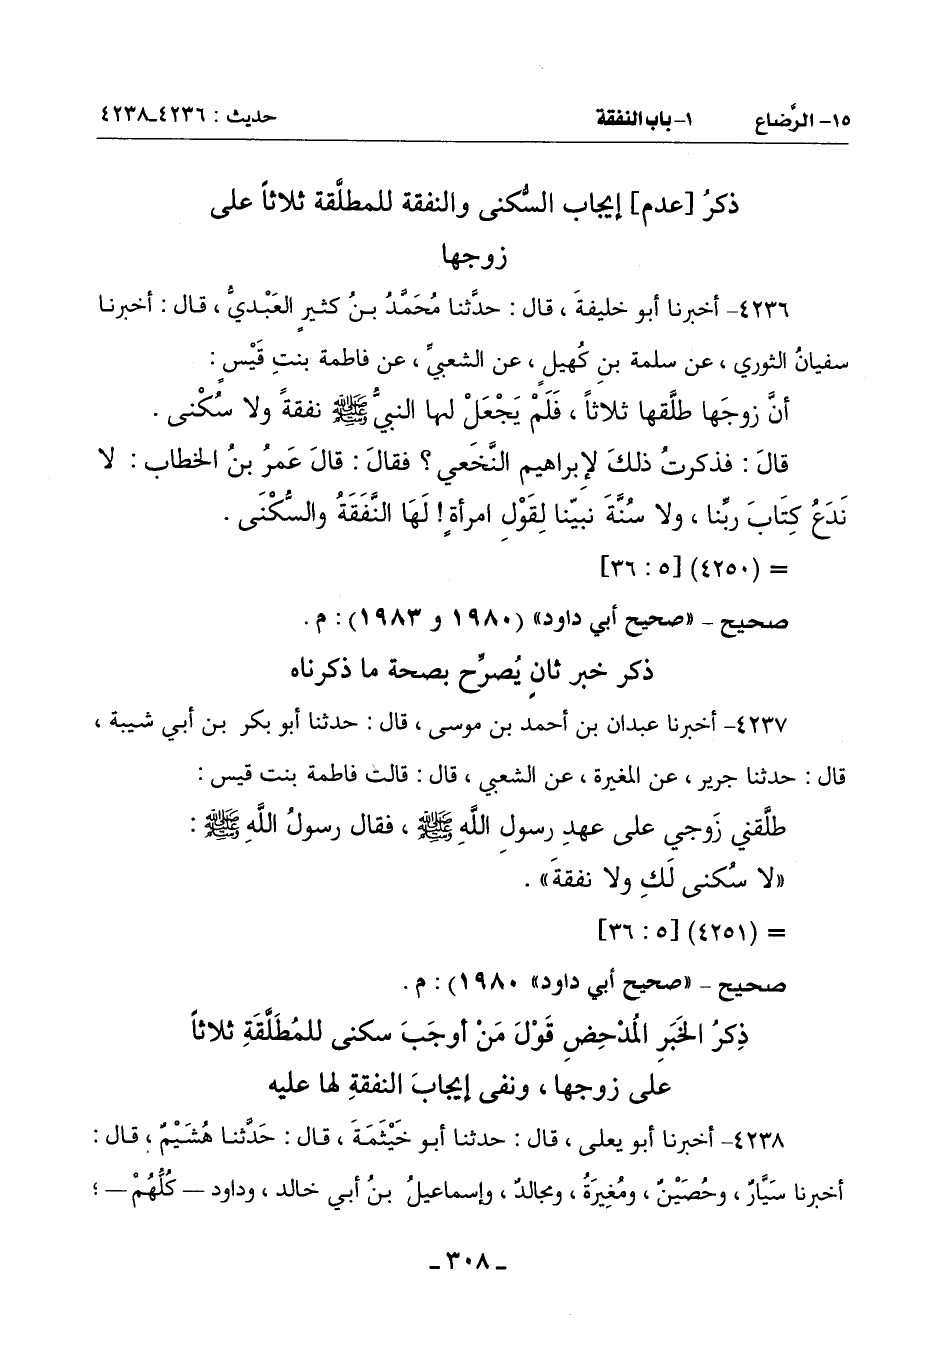 ١٥- الرَّضاع ١- باب النفقة حديث : ٤٢٣٦-٤٢٣٨
ذكرُ [عدم] إيجاب السُّكنى والنفقة للمطلَّقة ثلاثاً على
زوجها
٤٢٣٦- أخبرنا أبو خليفةَ ، قال : حدَّثنا مُحَمَّدُ بـنُ كثيرٍ العَبْـديُّ ، قـال : أخبرنـا
سفيانُ الثوري ، عن سلمة بنِ كُهيلٍ ، عن الشعبيِّ ، عن فاطمة بنتِ قَيْسٍ :
أنَّ زوجَها طلَّقها ثلاثاً ، فَلَمْ يَجْعَلْ لها النبيُّ ﷺ نفقةً ولا سُكْنى .
قالَ : فذكرتُ ذلكَ لإبراهيم النَّخَعي ؟ فقالَ : قالَ عَمرُ بنُ الخطاب : لا
نَدَعُ كِتَابَ ربِّنا ، ولا سُنَّةَ نبيِّنا لِقَوْلِ امرأةٍ ! لَهَا النَّفَقَةُ والسُّكْنَى .
= (٤٢٥٠) [٥ : ٣٦]
صحيح - «صحيح أبي داود» (١٩٨٠ و ١٩٨٣) : م .
ذكر خبر ثانٍ يُصرِّح بصحة ما ذكرناه
٤٢٣٧- أخبرنا عبدان بن أحمد بن موسى ، قال : حدثنا أبو بكر بن أبي شيبة ،
قال : حدثنا جرير ، عن المغيرة ، عن الشعبي ، قال : قالت فاطمة بنت قيس :
طلَّقني زَوجي على عهدِ رسولِ اللَّهِ ﷺ ، فقال رسولُ اللَّهِ ﷺ :
«لا سُكنى لَكِ ولا نفقةَ» .
= (٤٢٥١) [٥ : ٣٦]
صحيح - «صحيح أبي داود» ١٩٨٠) : م .
ذِكرُ الخَبَرِ المُدْحِضِ قَوْلَ مَنْ أوجَبَ سكنى للمُطَلَّقَةِ ثلاثاً
على زوجها ، ونفى إيجابَ النفقةِ لها عليه
٤٢٣٨- أخبرنا أبو يعلى ، قال : حدثنا أبو خَيْثَمَةَ ، قال : حَدَّثنا هُشَيْمٌ ، قال :
أخبرنا سَيَّارٌ ، وحُصَيْنٌ ، ومُغِيرَةُ ، ومجالدٌ ، وإسماعيلُ بنُ أبي خالد ، وداود — كُلُّهُمْ — ؛
- ٣٠٨ -